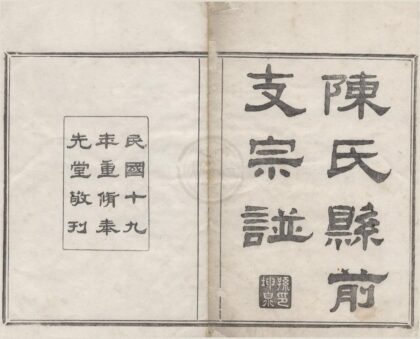 陳氏縣前
支宗譜
民國十九
年重脩奉
先堂敬刊